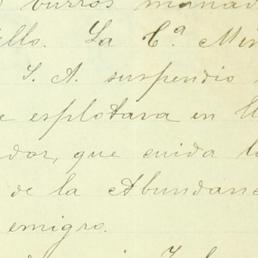 burros manad
illo. La C.ª Min
S. A. suspendio
e esplotara en M
ador, que cuida la
de la Abundan
emigro.